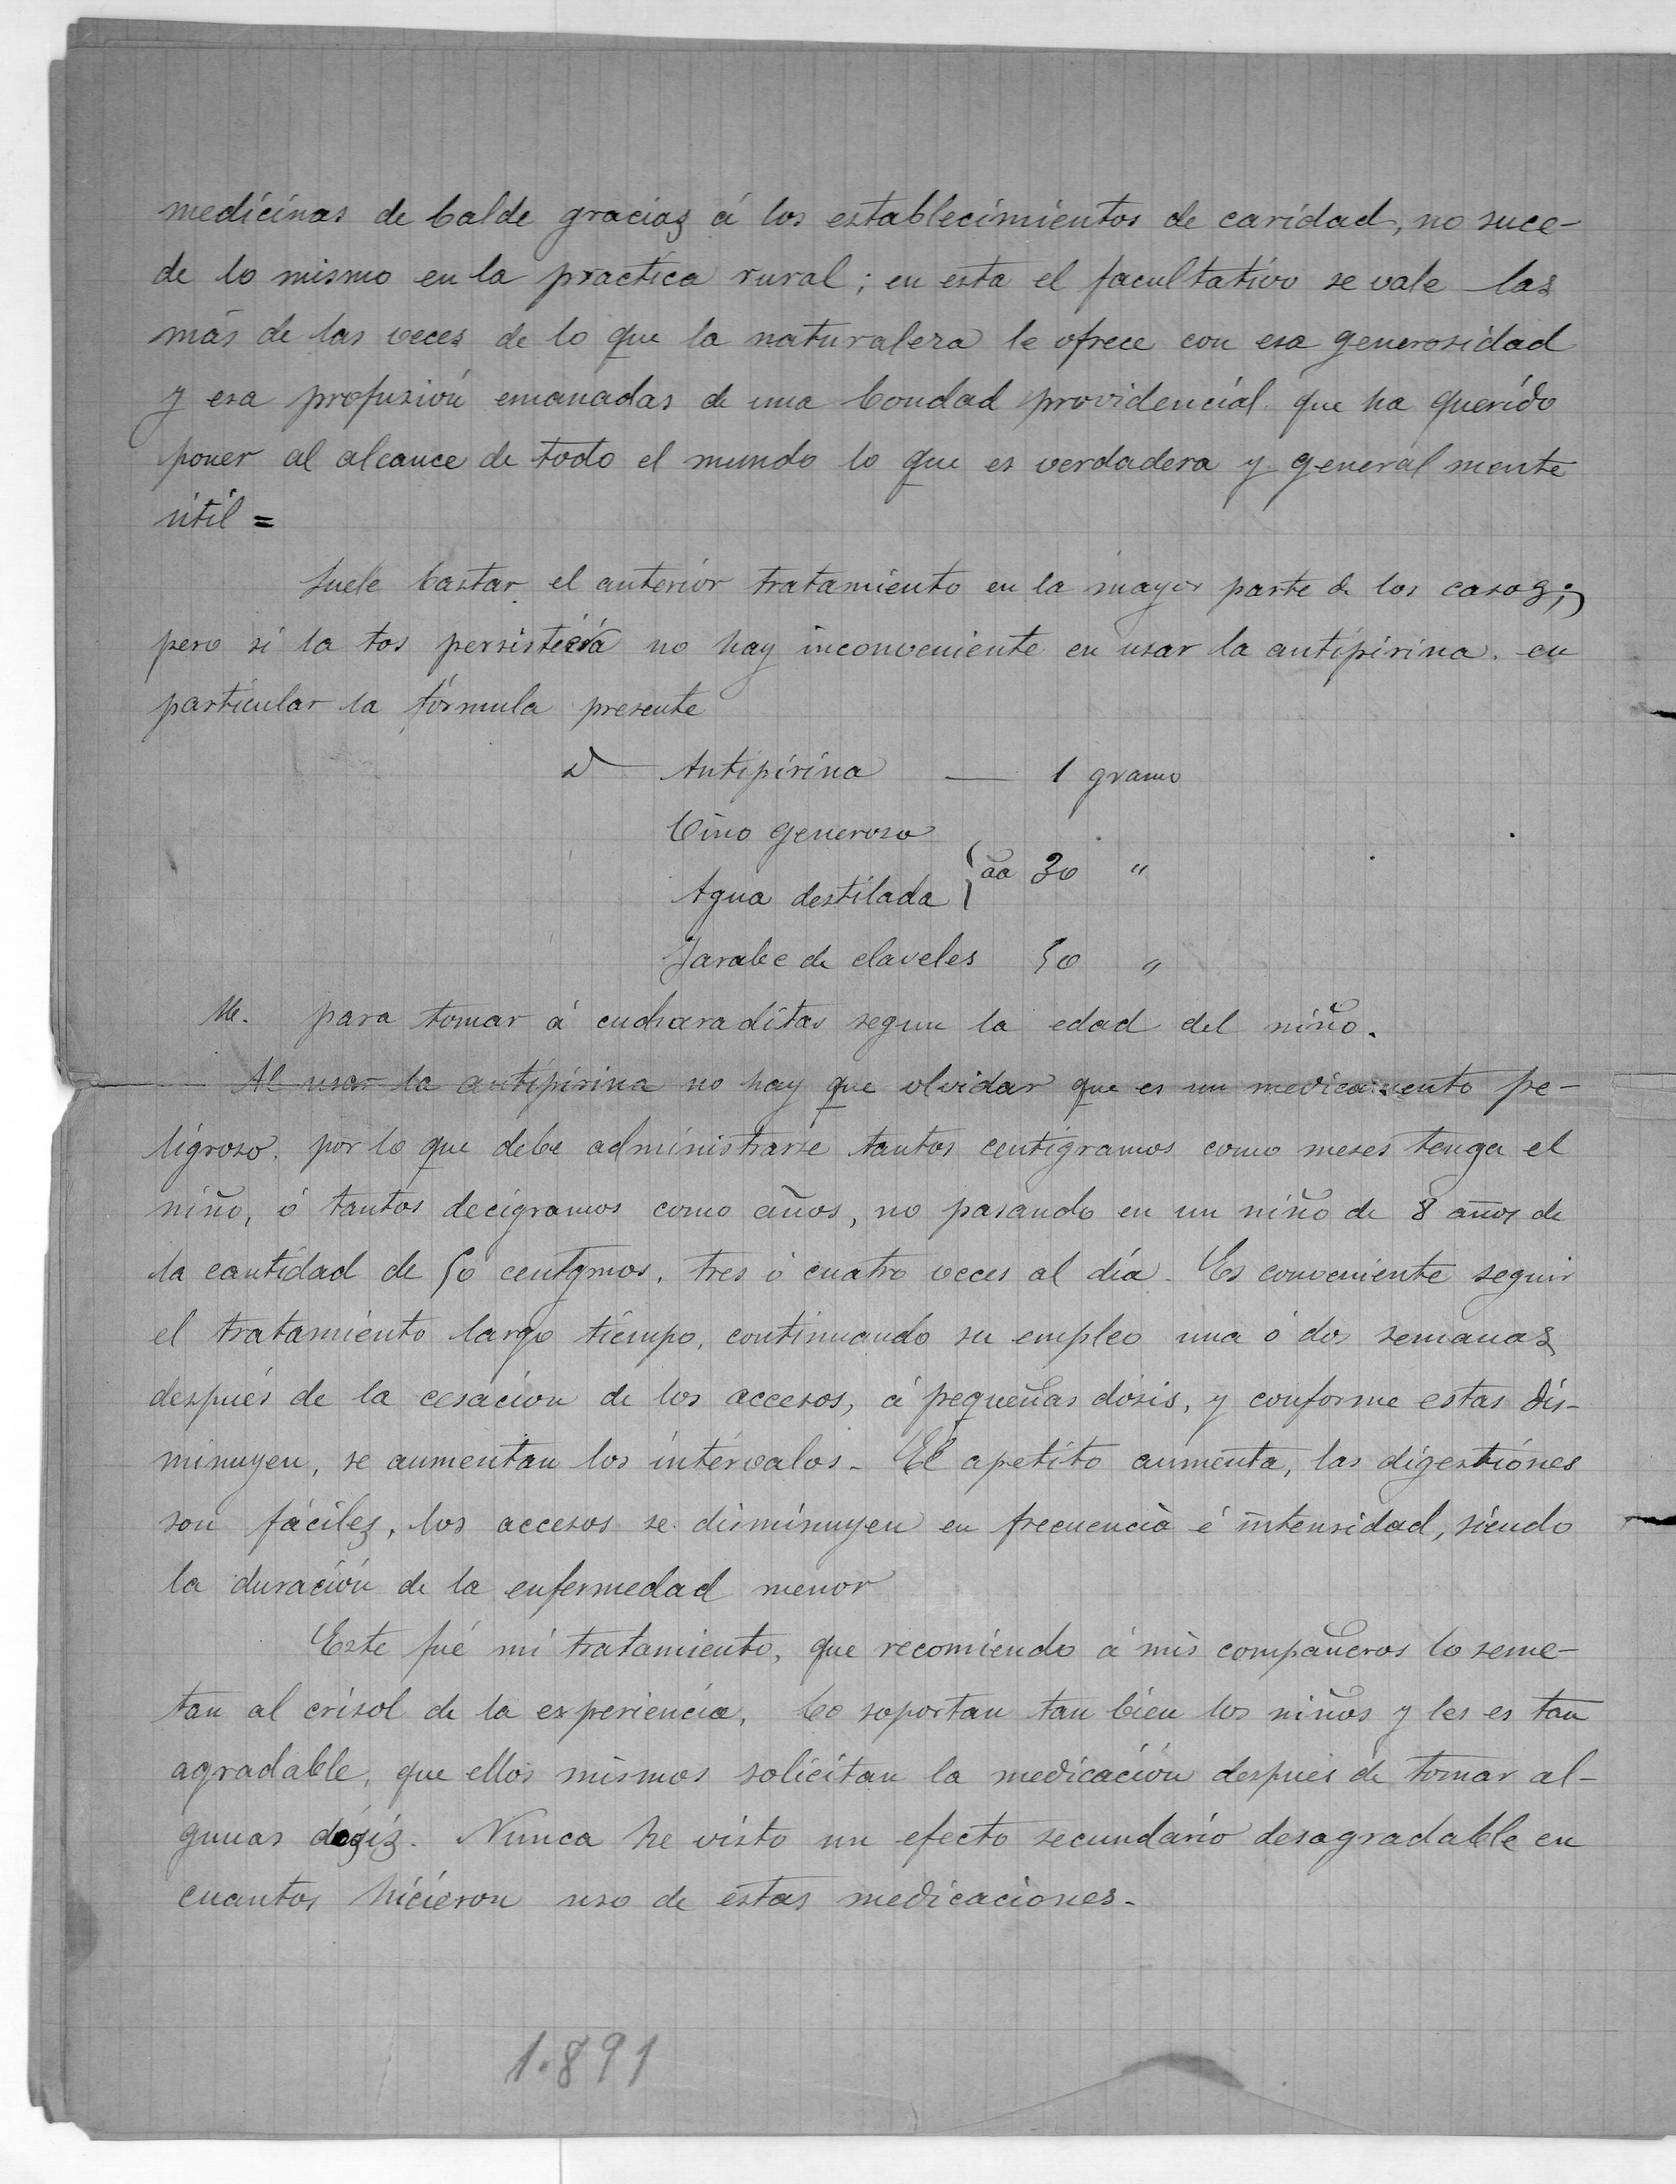 medicinas de balde gracias á los establecimientos de caridad, no suce-
de lo mismo en la practica rural; en esta el facultativo se vale las
más de las veces de lo que la naturaleza le ofrece con esa generosidad
y esa profusión emanadas de una bondad providencial que ha querido
poner al alcance de todo el mundo lo que es verdadera y general mente
útil =
Suele bastar el anterior tratamiento en la mayor parte de los casos;
pero si la tos persistiera no hay inconveniente en usar la antipirina. en
particular la fórmula presente
Antipirina — 1 gramo
Vino generoso
Agua destilada } aa 30 "
Jarabe de claveles 50 "
M. para tomar á cucharaditas segun la edad del niño.
Al usar la antipirina no hay que olvidar que es un medicamento pe-
ligroso. por lo que debe administrarse tantos centigramos como meses tenga el
niño, ó tantos decigramos como años, no pasando en un niño de 8 años de
la cantidad de 50 centgmos, tres ó cuatro veces al día. Es conveniente seguir
el tratamiento largo tiempo, continuando su empleo una ó dos semanas
después de la cesación de los accesos, á pequeñas dósis, y conforme estas dis-
minuyen, se aumentan los intérvalos - El apetito aumenta, las digestiónes
son fáciles, los accesos se disminuyen en frecuencia é intensidad, siendo
la duración de la enfermedad menor
Este fué mi tratamiento, que recomiendo á mis compañeros lo seme-
tan al crisol de la experiencia. Lo soportan tan bien los niños y les es tan
agradable, que ellos mismos solicitan la medicación después de tomar al-
gunas dósis. Nunca he visto un efecto secundario desagradable en
cuantos hicieron uso de éstas medicaciones-
1.891